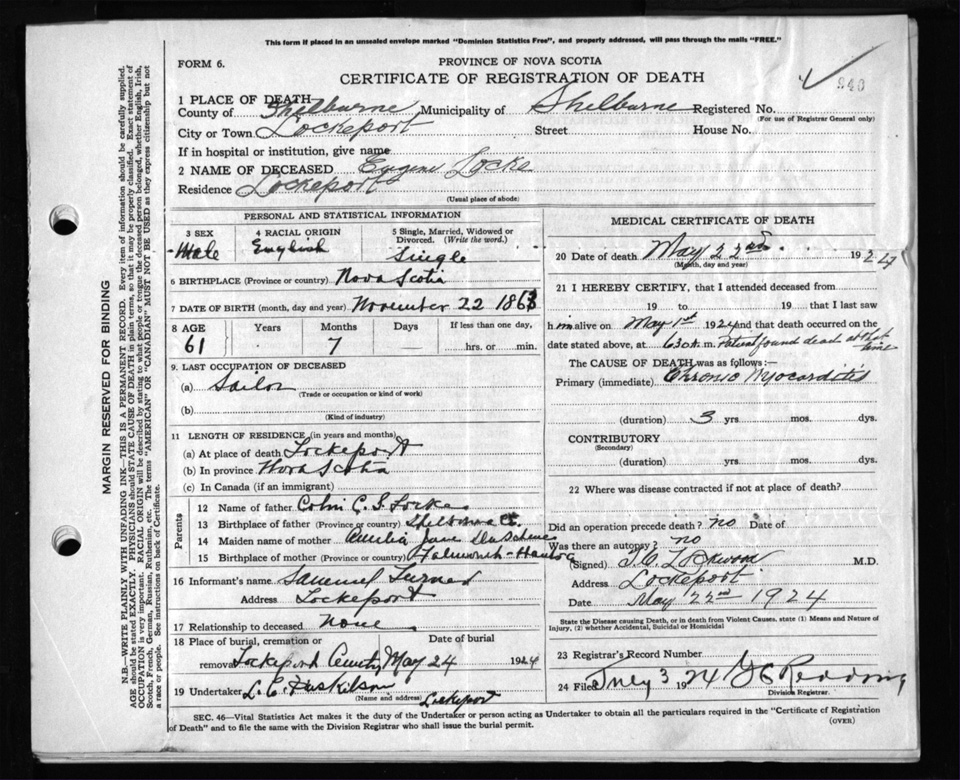 This form if placed in an unsealed envelope marked "Dominion Statistics Free", and properly addressed, will pass through the mails "FREE."
FORM 6.
PROVINCE OF NOVA SCOTIA
CERTIFICATE OF REGISTRATION OF DEATH
940
1 PLACE OF DEATH
County of Shelburne Municipality of Shelburne Registered No.
(For use of Registrar General only)
City or Town Lockeport Street House No.
If in hospital or institution, give name
2 NAME OF DECEASED Eugene Locke
Residence Lockeport
(Usual place of abode)
PERSONAL AND STATISTICAL INFORMATION
3 SEX 4 RACIAL ORIGIN 5 Single, Married, Widowed or Divorced. (Write the word.)
Male English Single
6 BIRTHPLACE (Province or country) Nova Scotia
7 DATE OF BIRTH (month, day and year) November 22 186
8 AGE Years Months Days If less than one day,
61 7 — hrs. or min.
9. LAST OCCUPATION OF DECEASED
(a) Sailor
(Trade or occupation or kind of work)
(b)
(Kind of industry)
11 LENGTH OF RESIDENCE (in years and months)
(a) At place of death Lockeport
(b) In province Nova Scotia
(c) In Canada (if an immigrant)
Parents
12 Name of father Locke
13 Birthplace of father (Province or country) Shelburne Co.
14 Maiden name of mother Jane
15 Birthplace of mother (Province or country) Falmouth - Hants Co
16 Informant's name Samuel Turner
Address Lockeport
17 Relationship to deceased None
18 Place of burial, cremation or removal Date of burial
Lockeport May 24 1924
19 Undertaker L. C.
(Name and address) Lockeport
MEDICAL CERTIFICATE OF DEATH
20 Date of death May 22nd 1924
(Month, day and year)
21 I HEREBY CERTIFY, that I attended deceased from
19 to 19 that I last saw
h im alive on May 1st 1924 and that death occurred on the
date stated above, at 6 30 A. m. Patient found dead at that time
The CAUSE OF DEATH was as follows:—
Primary (immediate) Chronic Myocarditis
(duration) 3 yrs. mos. dys.
CONTRIBUTORY
(Secondary)
(duration) yrs. mos. dys.
22 Where was disease contracted if not at place of death?
Did an operation precede death? no Date of
Was there an autopsy? no
(Signed) Lockwood M.D.
Address Lockeport
Date May 22nd 1924
State the Disease causing Death, or in death from Violent Causes, state (1) Means and Nature of Injury, (2) whether Accidental, Suicidal or Homicidal
23 Registrar's Record Number
24 Filed 3 1924
Division Registrar.
SEC. 46—Vital Statistics Act makes it the duty of the Undertaker or person acting as Undertaker to obtain all the particulars required in the "Certificate of Registration
of Death" and to file the same with the Division Registrar who shall issue the burial permit.
(OVER)
MARGIN RESERVED FOR BINDING
N.B.—WRITE PLAINLY WITH UNFADING INK—THIS IS A PERMANENT RECORD. Every item of information should be carefully supplied.
AGE should be stated EXACTLY. PHYSICIANS should STATE CAUSE OF DEATH in plain terms, so that it may be properly classified. Exact statement of
OCCUPATION is very important. RACIAL ORIGIN will be described by stating to what people or tongue the deceased person belonged, whether English, Irish,
Scotch, French, German, Russian, Ruthenian, etc. The terms "AMERICAN" OR "CANADIAN" MUST NOT BE USED as they express citizenship but not
a race or people. See instructions on back of Certificate.